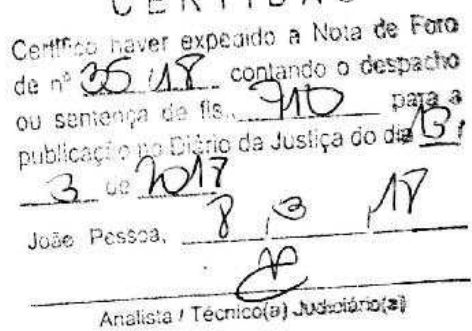 CERTIDÃO
Certifico haver expedido a Nota de Foro
de nº 35 / 18 contando o despacho
ou sentença de fls. 710 para a
publicação no Diário da Justiça do dia 13 /
3 de 2017
João Pessoa, 8 / 3 / 18
Analista / Técnico(a) Judiciário(a)